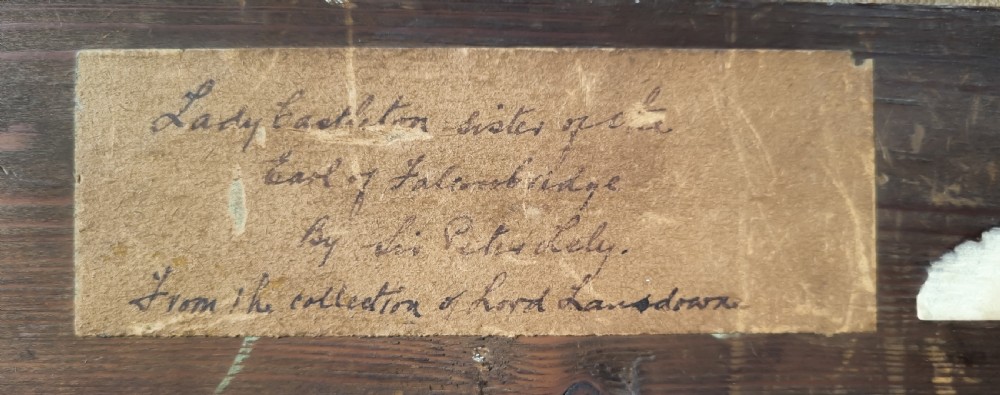 Lady Castleton sister of the
Earl of Falconbridge
By Sir Peter Lely.
From the collection of Lord Lansdown